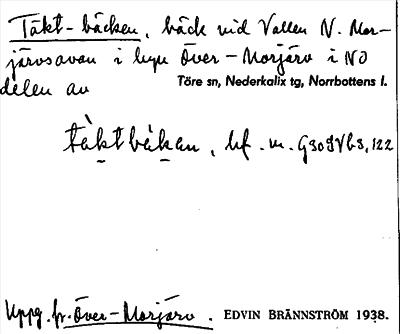 Täkt-bäcken, bäck vid Vallen N. Mor-
järvsavan i byn Över-Morjärv i NO
delen av Töre sn, Nederkalix tg, Norrbottens l.
tàktbäkan, bf. m.
Uppg. fr. Över-Morjärv. EDVIN BRÄNNSTRÖM 1938.